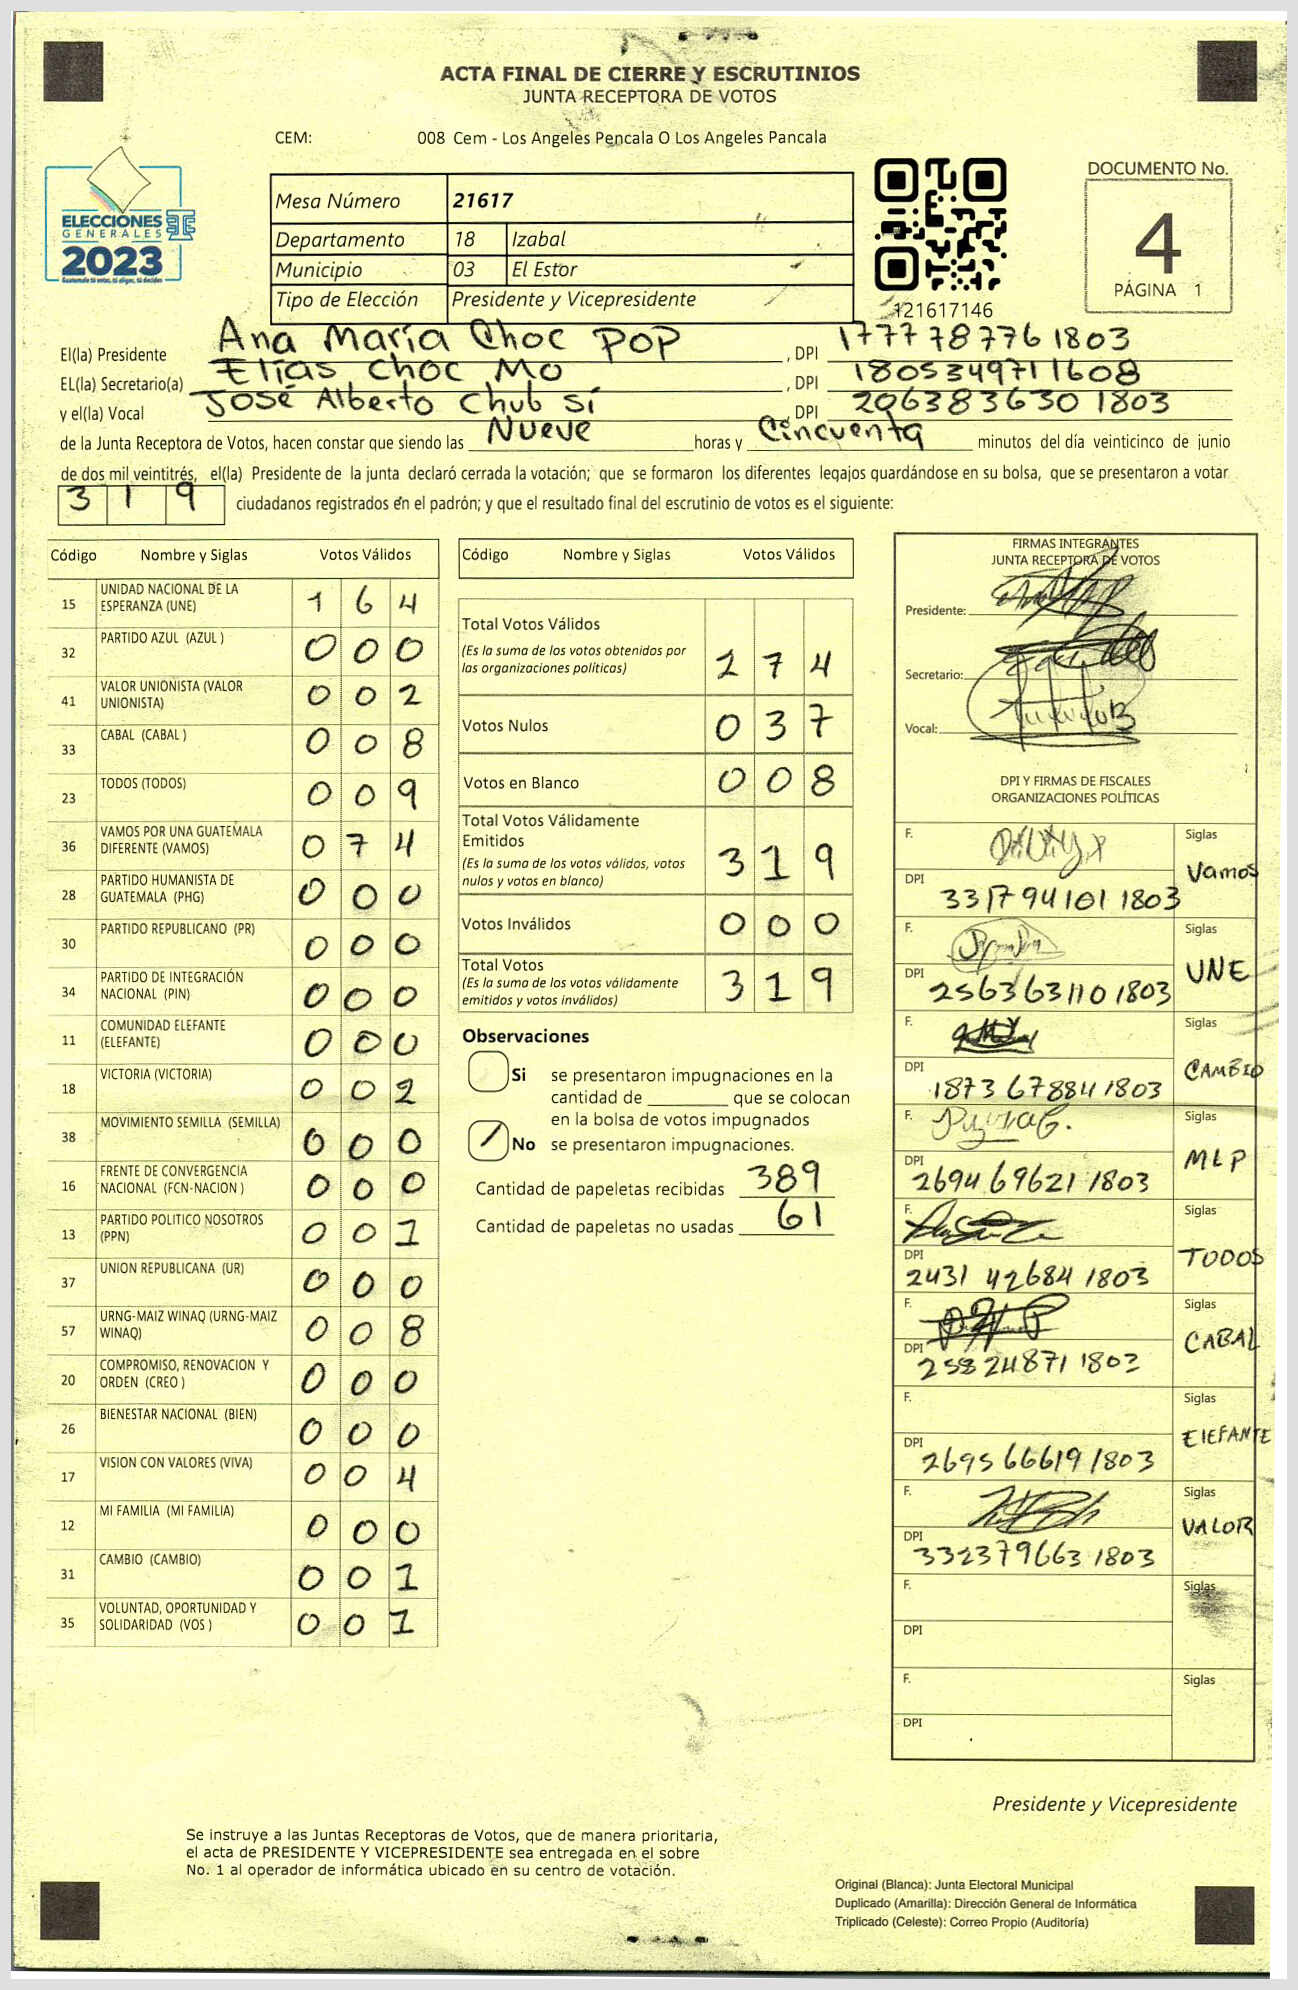 ACTA FINAL DE CIERRE Y ESCRUTINIOS
JUNTA RECEPTORA DE VOTOS
CEM: 008 Cem - Los Angeles Pencala O Los Angeles Pancala
ELECCIONES
GENERALES
2023
Guatemala tú votas, tú eliges, tú decides
Mesa Número 21617
Departamento 18 Izabal
Municipio 03 El Estor
Tipo de Elección Presidente y Vicepresidente
121617146
DOCUMENTO No.
4
PÁGINA 1
El(la) Presidente Ana María Choc Pop , DPI 1777787761803
EL(la) Secretario(a) Elías Choc Mo , DPI 1805349711608
y el(la) Vocal José Alberto Chub Sí , DPI 2063836301803
de la Junta Receptora de Votos, hacen constar que siendo las Nueve horas y Cincuenta minutos del día veinticinco de junio
de dos mil veintitrés, el(la) Presidente de la junta declaró cerrada la votación; que se formaron los diferentes legajos quardándose en su bolsa, que se presentaron a votar
319 ciudadanos registrados en el padrón; y que el resultado final del escrutinio de votos es el siguiente:
Código Nombre y Siglas Votos Válidos
15 UNIDAD NACIONAL DE LA ESPERANZA (UNE) 1 6 4
32 PARTIDO AZUL (AZUL ) 0 0 0
41 VALOR UNIONISTA (VALOR UNIONISTA) 0 0 2
33 CABAL (CABAL ) 0 0 8
23 TODOS (TODOS) 0 0 9
36 VAMOS POR UNA GUATEMALA DIFERENTE (VAMOS) 0 7 4
28 PARTIDO HUMANISTA DE GUATEMALA (PHG) 0 0 0
30 PARTIDO REPUBLICANO (PR) 0 0 0
34 PARTIDO DE INTEGRACIÓN NACIONAL (PIN) 0 0 0
11 COMUNIDAD ELEFANTE (ELEFANTE) 0 0 0
18 VICTORIA (VICTORIA) 0 0 2
38 MOVIMIENTO SEMILLA (SEMILLA) 0 0 0
16 FRENTE DE CONVERGENCIA NACIONAL (FCN-NACION ) 0 0 0
13 PARTIDO POLITICO NOSOTROS (PPN) 0 0 1
37 UNION REPUBLICANA (UR) 0 0 0
57 URNG-MAIZ WINAQ (URNG-MAIZ WINAQ) 0 0 8
20 COMPROMISO, RENOVACION Y ORDEN (CREO ) 0 0 0
26 BIENESTAR NACIONAL (BIEN) 0 0 0
17 VISION CON VALORES (VIVA) 0 0 4
12 MI FAMILIA (MI FAMILIA) 0 0 0
31 CAMBIO (CAMBIO) 0 0 1
35 VOLUNTAD, OPORTUNIDAD Y SOLIDARIDAD (VOS ) 0 0 1
Código Nombre y Siglas Votos Válidos
Total Votos Válidos
(Es la suma de los votos obtenidos por
las organizaciones políticas) 2 7 4
Votos Nulos 0 3 7
Votos en Blanco 0 0 8
Total Votos Válidamente
Emitidos
(Es la suma de los votos válidos, votos
nulos y votos en blanco) 3 1 9
Votos Inválidos 0 0 0
Total Votos
(Es la suma de los votos válidamente
emitidos y votos inválidos) 3 1 9
Observaciones
Si se presentaron impugnaciones en la
cantidad de ________ que se colocan
en la bolsa de votos impugnados
No se presentaron impugnaciones.
Cantidad de papeletas recibidas 389
Cantidad de papeletas no usadas 61
FIRMAS INTEGRANTES
JUNTA RECEPTORA DE VOTOS
Presidente:
Secretario:
Vocal:
DPI Y FIRMAS DE FISCALES
ORGANIZACIONES POLÍTICAS
F. Siglas Vamos
DPI 3317941011803
F. Siglas UNE
DPI 2563631101803
F. Siglas CAMBIO
DPI 1873678841803
F. Siglas MLP
DPI 2694696211803
F. Siglas TODOS
DPI 2431426841803
F. Siglas CABAL
DPI
F. Siglas ElEFANTE
DPI 2695666191803
F. Siglas VALOR
DPI 3323796631803
F. Siglas
DPI
F. Siglas
DPI
Presidente y Vicepresidente
Se instruye a las Juntas Receptoras de Votos, que de manera prioritaria,
el acta de PRESIDENTE Y VICEPRESIDENTE sea entregada en el sobre
No. 1 al operador de informática ubicado en su centro de votación.
Original (Blanca): Junta Electoral Municipal
Duplicado (Amarilla): Dirección General de Informática
Triplicado (Celeste): Correo Propio (Auditoría)